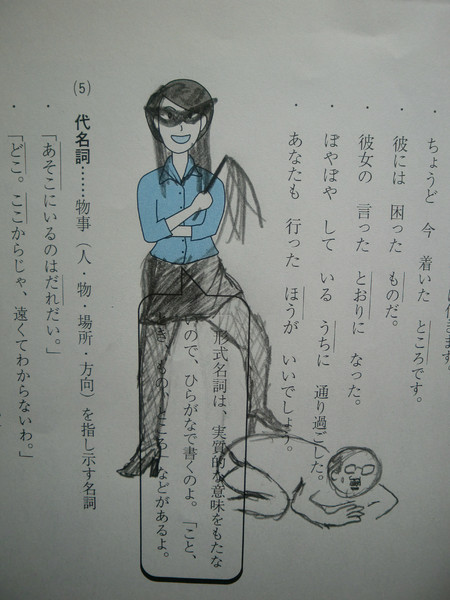 ちょうど 今 着いた ところです。
・彼には 困った ものだ。
・彼女の 言った とおりに なった。
・ぼやぼや して いる うちに 通り過ごした。
・あなたも 行った ほうが いいでしょう。
形式名詞は、実質的な意味をもたな
いので、ひらがなで書くのよ。「こと、
とき、もの、ところ」などがあるよ。
(5) 代名詞……物事(人・物・場所・方向)を指し示す名詞
・「あそこにいるのはだれだい。」
・「どこ。ここからじゃ、遠くてわからないわ。」